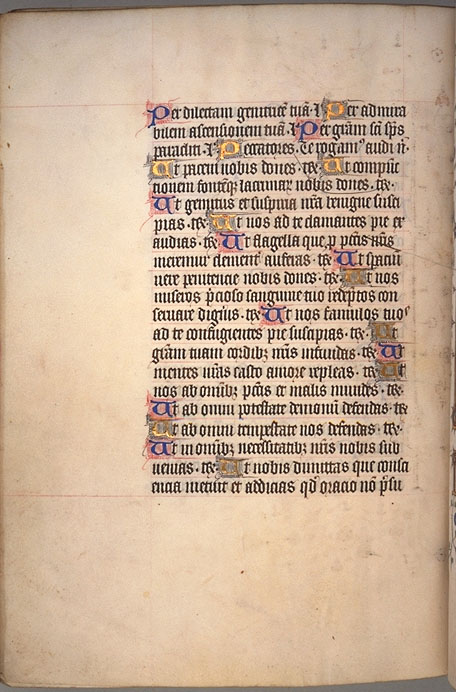 Per dilectam genitricē tuā. l. Per admira
bilem ascensionem tuā. l. Per grām sci sps
paracliti. l. Peccatores. Te rogam⁹ audi n̄.
Ut pacem nobis dones. te. Ut compūc
tionem fontēqꝫ lacrimaꝝ nobis dones. te.
Ut gemitus et suspiria nr̄a benigne susci
pias. te. Ut nos ad te clamantes pie ex
audias. te. Ut flagella que ꝓ pctis nr̄is
meremur clement̄ auferas. te. Ut spaciū
vere penitencie nobis dones. te. Ut nos
miseros p̄cioso sanguine tuo redēptos con
seruare digneris. te. Ut nos famulos tuos
ad te confugientes pie suscipias. te. Ut
grām tuam cordibꝫ nr̄is infundas. te. Ut
mentes nr̄as casto amore repleas. te. Ut
nos ab om̄ibꝫ pctis et malis mundes. te.
Ut ab omni potestate demonū defendas. te
Ut ab omni tempestate nos defendas. te.
Ut in om̄ibꝫ necessitatibꝫ nr̄is nobis sub
uenias. te. Ut nobis dimittas que consci
encia metuit et addicias qd̄ oracio nō p̄su